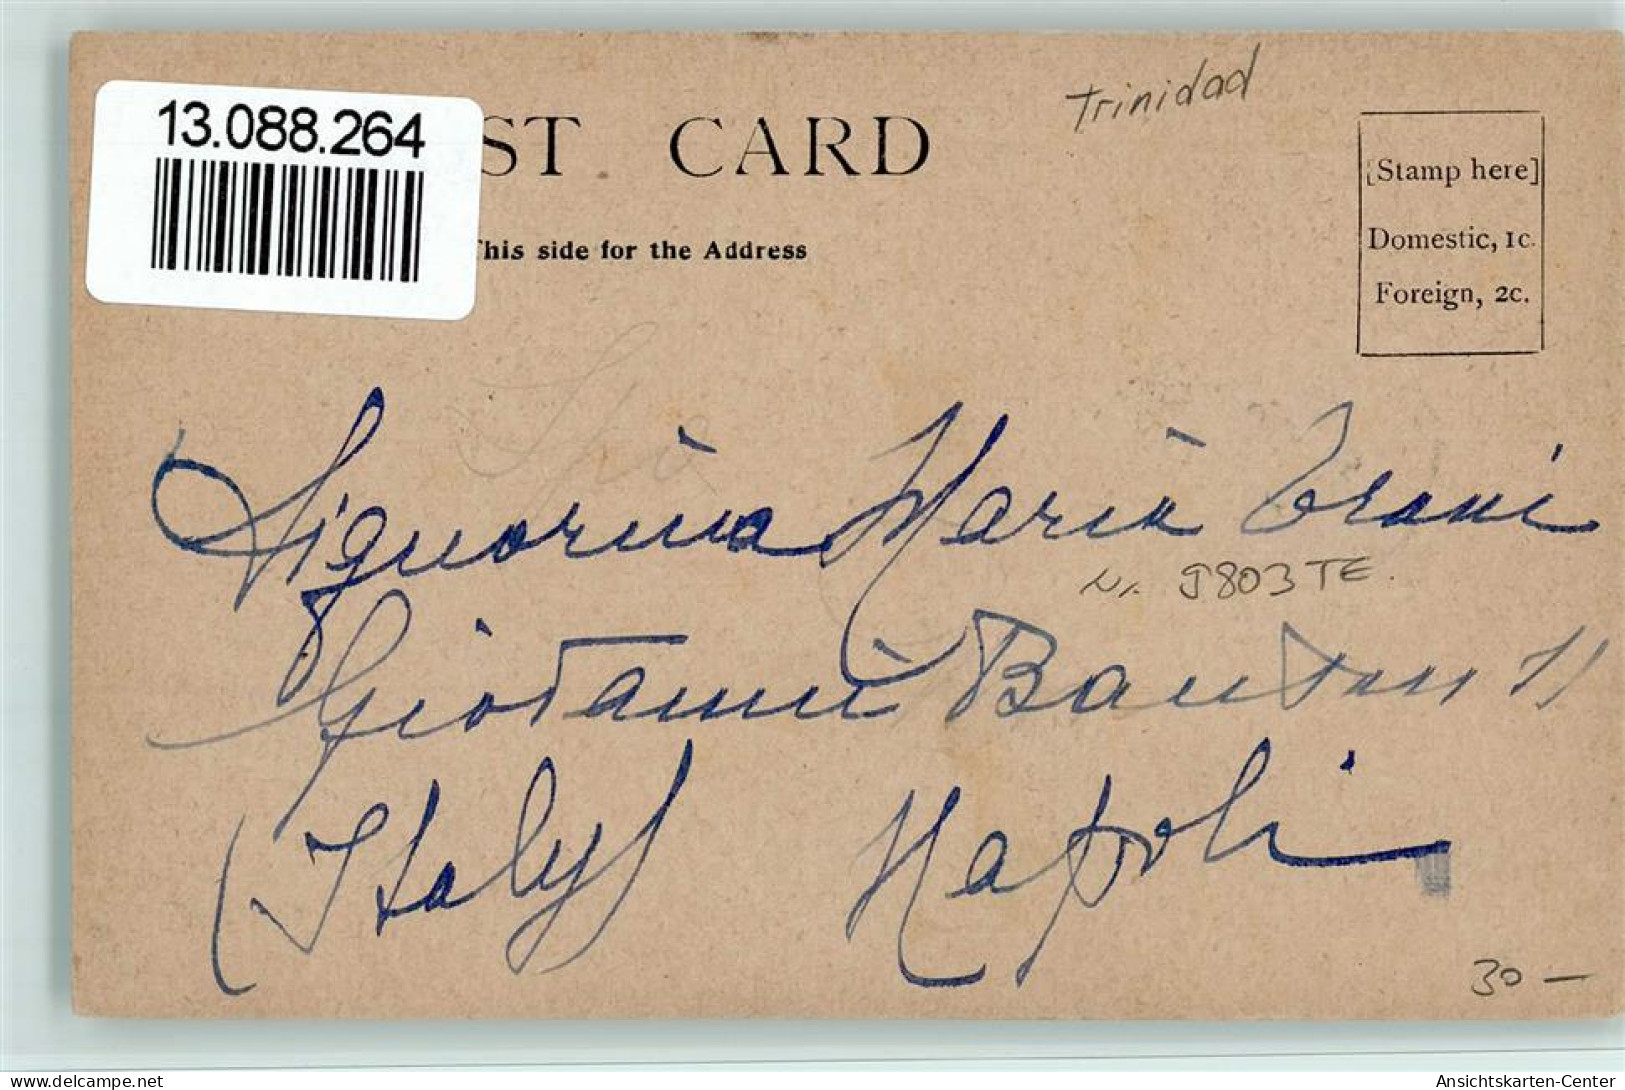 13.088.264
ST CARD
Trinidad
[Stamp here]
Domestic, 1c.
Foreign, 2c.
This side for the Address
Signorina Maria Trani
Nr. 9803 TE.
Giovanni Bausan 11
(Italy) Napoli
30 —
delcampe.net
Ansichtskarten-Center